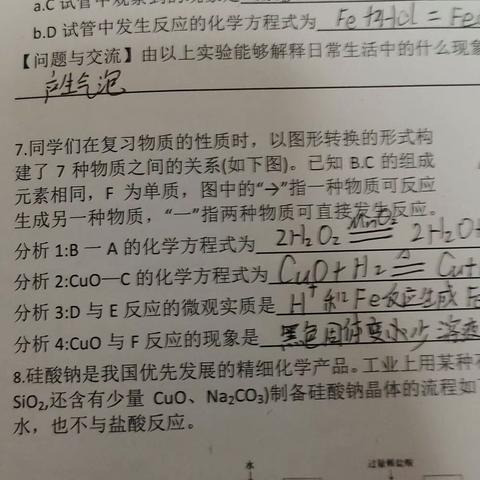 a.C 试管中观察到的现象是
b.D 试管中发生反应的化学方程式为 Fe+2HCl=Fe
【问题与交流】由以上实验能够解释日常生活中的什么现象
产生气泡
7.同学们在复习物质的性质时，以图形转换的形式构
建了 7 种物质之间的关系(如下图)。已知 B.C 的组成
元素相同，F 为单质，图中的“→”指一种物质可反应
生成另一种物质，“一”指两种物质可直接发生反应。
分析 1:B 一 A 的化学方程式为 2H₂O₂ MnO₂ 2H₂O+
分析 2:CuO—C 的化学方程式为 CuO+H₂ △ Cu+
分析 3:D 与 E 反应的微观实质是 H⁺和Fe反应生成Fe
分析 4:CuO 与 F 反应的现象是 黑色固体变小少 溶液
8.硅酸钠是我国优先发展的精细化学产品。工业上用某种石
SiO₂,还含有少量 CuO、Na₂CO₃)制备硅酸钠晶体的流程如
水，也不与盐酸反应。
水 过量稀盐酸